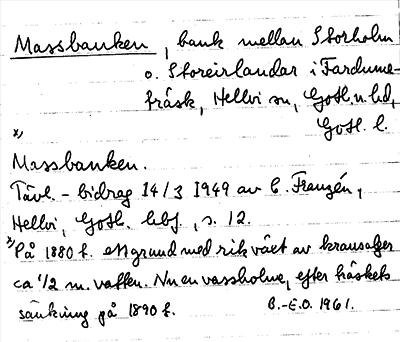 Massbanken, bank mellan Storholm
o. Storeirlandar i Fardume-
träsk, Hellvi sn, Gotl. n. hd,
Gotl. l.
x)
Massbanken.
Tävl. - bidrag 14/3 1949 av C. Franzén,
Hellvi, Gotl. , s. 12.
x) På 1880 t. ett grund med rik växt av krausalger
ca 1/2 m. vatten. Nu en vassholme, efter träskets
sänkning på 1890 t. B.-E.O. 1961.